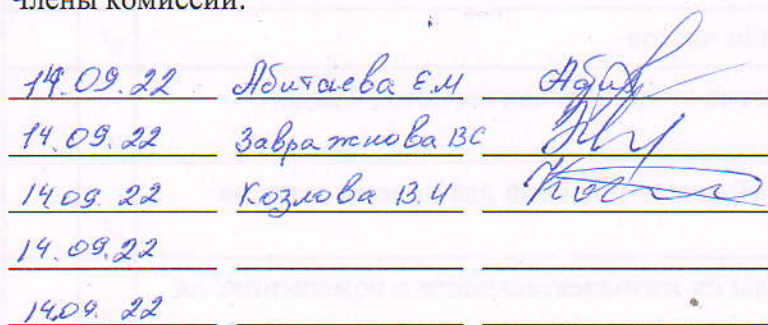 Члены комиссии:
14.09.22 Абитаева Е.М
14.09.22 Завражнова ВС
14 09. 22 Козлова В.И
14.09.22
14.09. 22